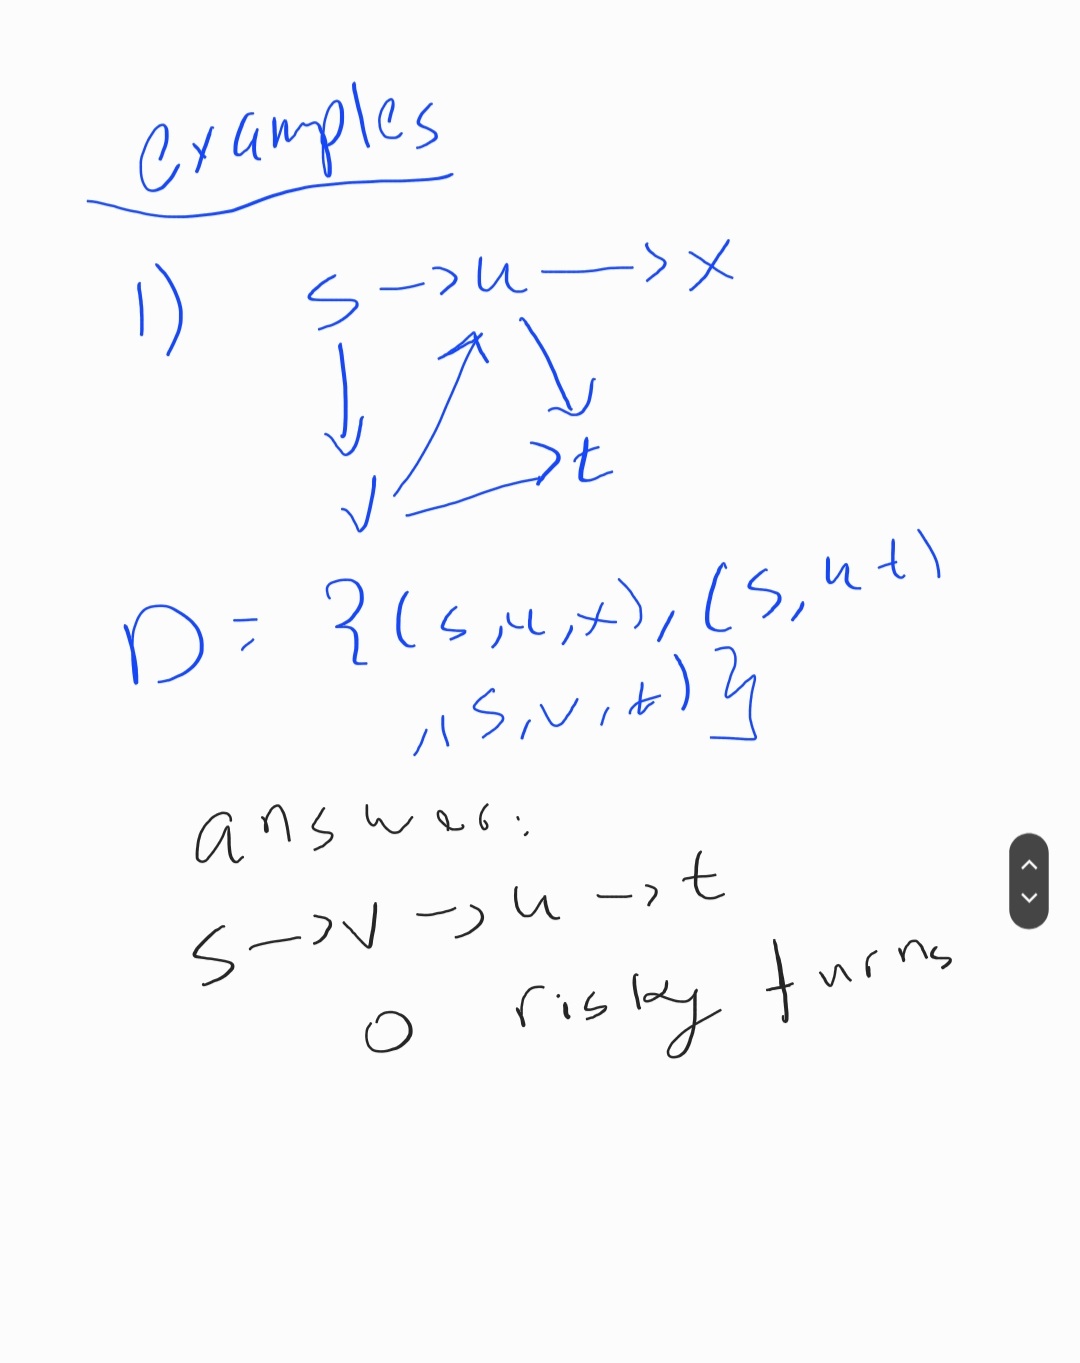 examples
1) s -> u -> x
v
t
D = {(s,u,x), (s, u t)
, (s,v,t)}
answer:
s -> v -> u -> t
0 risky turns